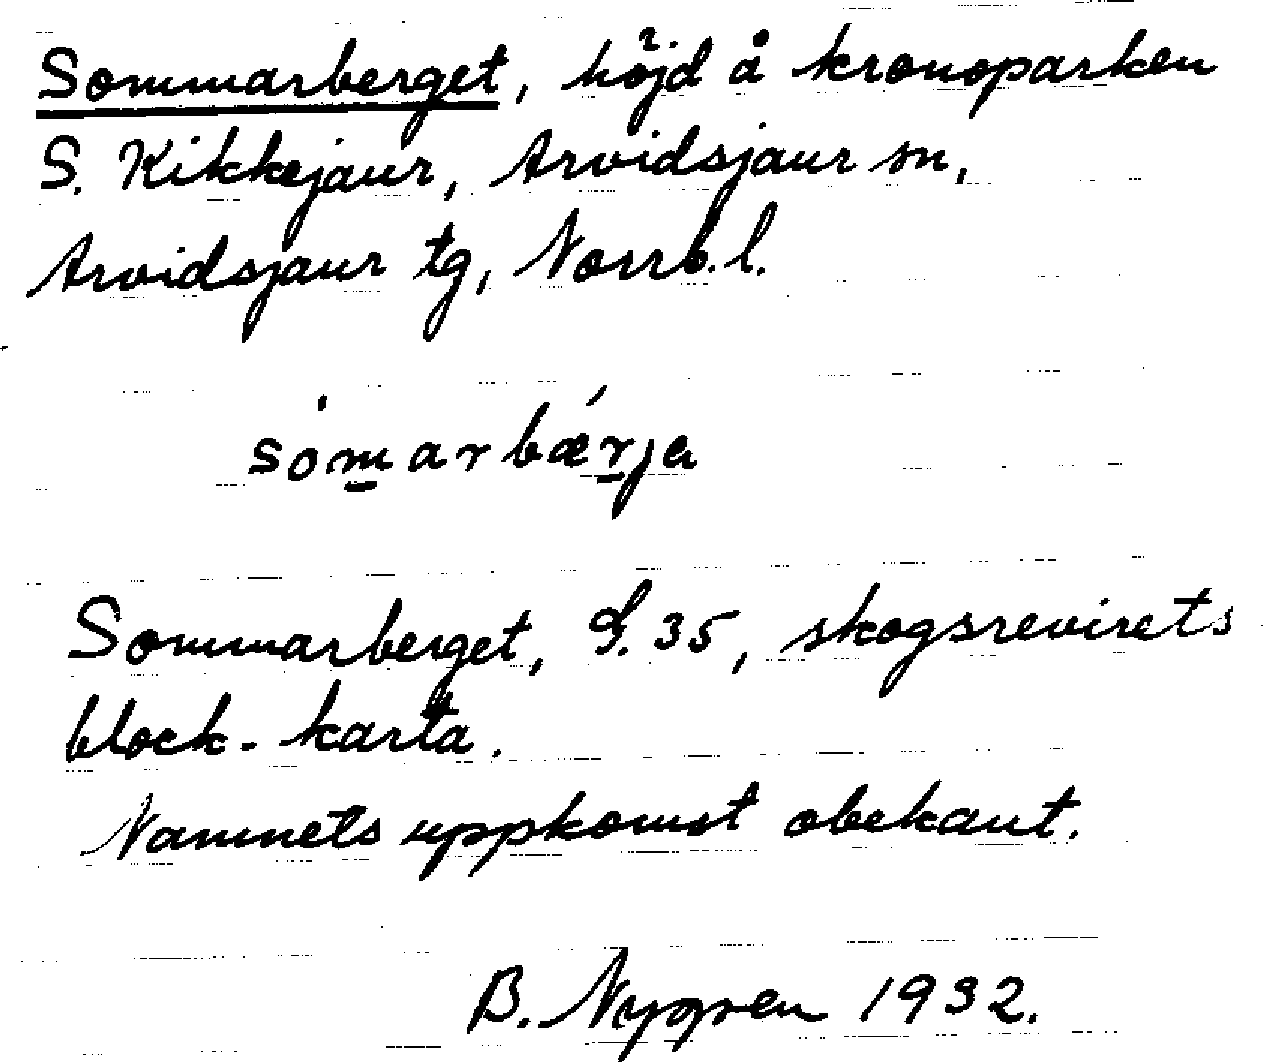 Sommarberget, höjd å kronoparken
S. Kikkejaur, Arvidsjaur sn,
Arvidsjaur tg, Norrb. l.
so̍m̲arbæŕ̲ja
Sommarberget, G. 35, skogsrevirets
block-karta.
Namnets uppkomst obekant.
B. Nygren 1932.